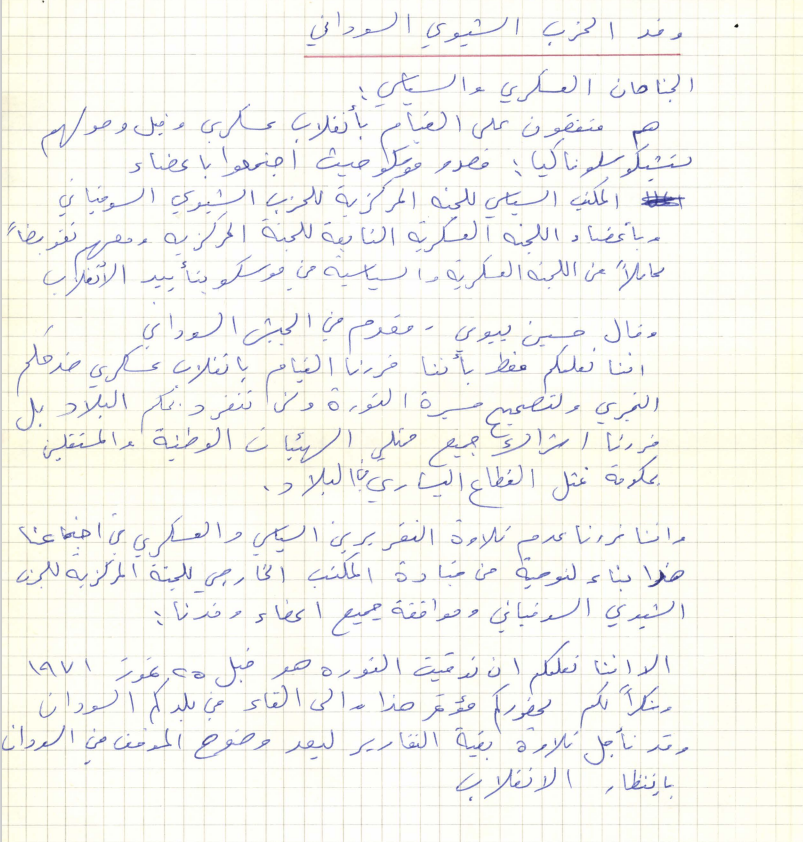 وفد الحزب الشيوعي السوداني
الجناحان العسكري والسياسي:
هم متفقون على القيام بأنقلاب عسكري وقبل وصولهم
لتشيكوسلوفاكيا: قصدو موسكو حيث أجتمعوا باعضاء
المكتب السياسي للجنه المركزية للحزب الشيوعي السوفياتي
وبأعضاء اللجنه العسكرية التابعة للجنة المركزيه ومعهم تفويضاً
كاملاً من اللجنه العسكرية والسياسية في موسكو بتأييد الأنقلاب
وقال حسين بيومي - مقدم في الجيش السوداني
اننا نعلمكم فقط بأننا قررنا القيام بانقلاب عسكري ضد حكم
النميري ولتصحيح مسيرة الثورة ولن ننفرد بحكم البلاد بل
قررنا اشتراك جميع ممثلي الهيئات الوطنية والمستقلين
بحكومة تمثل القطاع اليساري في البلاد.
واننا قررنا عدم تلاوة التقريرين السياسي والعسكري في اجتماعنا
هذا بناء لتوصية من قيادة المكتب الخارجي للجنة المركزية للحزب
الشيوعي السوفياتي وموافقة جميع اعضاء وفدنا:
الا اننا نعلمكم ان توقيت الثوره هو قبل ٢٥ تموز ١٩٧١
وشكراً لكم لحضوركم مؤتمر هذا والى القاء في بلدكم السودان
وقد تأجل تلاوة بقية التقارير لبعد وضوح الموقف في السودان
بإنتظار الانقلاب